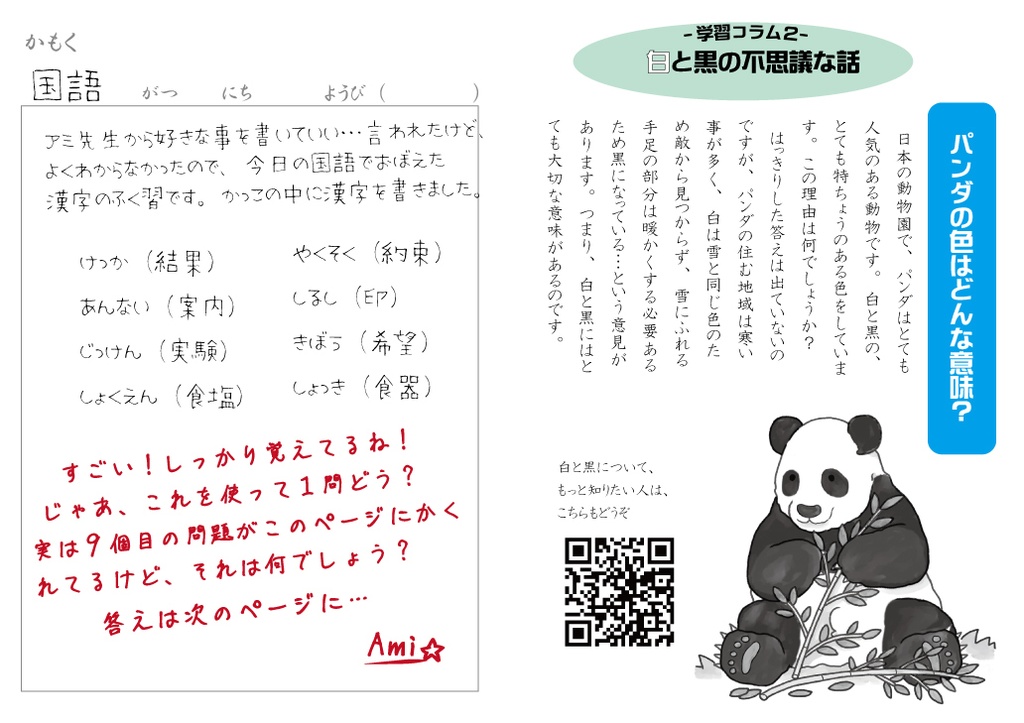 かもく
国語　がつ　にち　ようび（　　）
アミ先生から好きな事を書いていい…言われたけど、
よくわからなかったので、今日の国語でおぼえた
漢字のふく習です。かっこの中に漢字を書きました。
けっか（結果）
あんない（案内）
じっけん（実験）
しょくえん（食塩）
やくそく（約束）
しるし（印）
きぼう（希望）
しょっき（食器）
すごい！しっかり覚えてるね！
じゃあ、これを使って１問どう？
実は９個目の問題がこのページにかく
れてるけど、それは何でしょう？
答えは次のページに…
Ami☆
-学習コラム2-
白と黒の不思議な話
パンダの色はどんな意味？
日本の動物園で、パンダはとても
人気のある動物です。白と黒の、
とても特ちょうのある色をしていま
す。この理由は何でしょうか？
はっきりした答えは出ていないの
ですが、パンダの住む地域は寒い
事が多く、白は雪と同じ色のた
め敵から見つからず、雪にふれる
手足の部分は暖かくする必要ある
ため黒になっている…という意見が
あります。つまり、白と黒にはと
ても大切な意味があるのです。
白と黒について、
もっと知りたい人は、
こちらもどうぞ